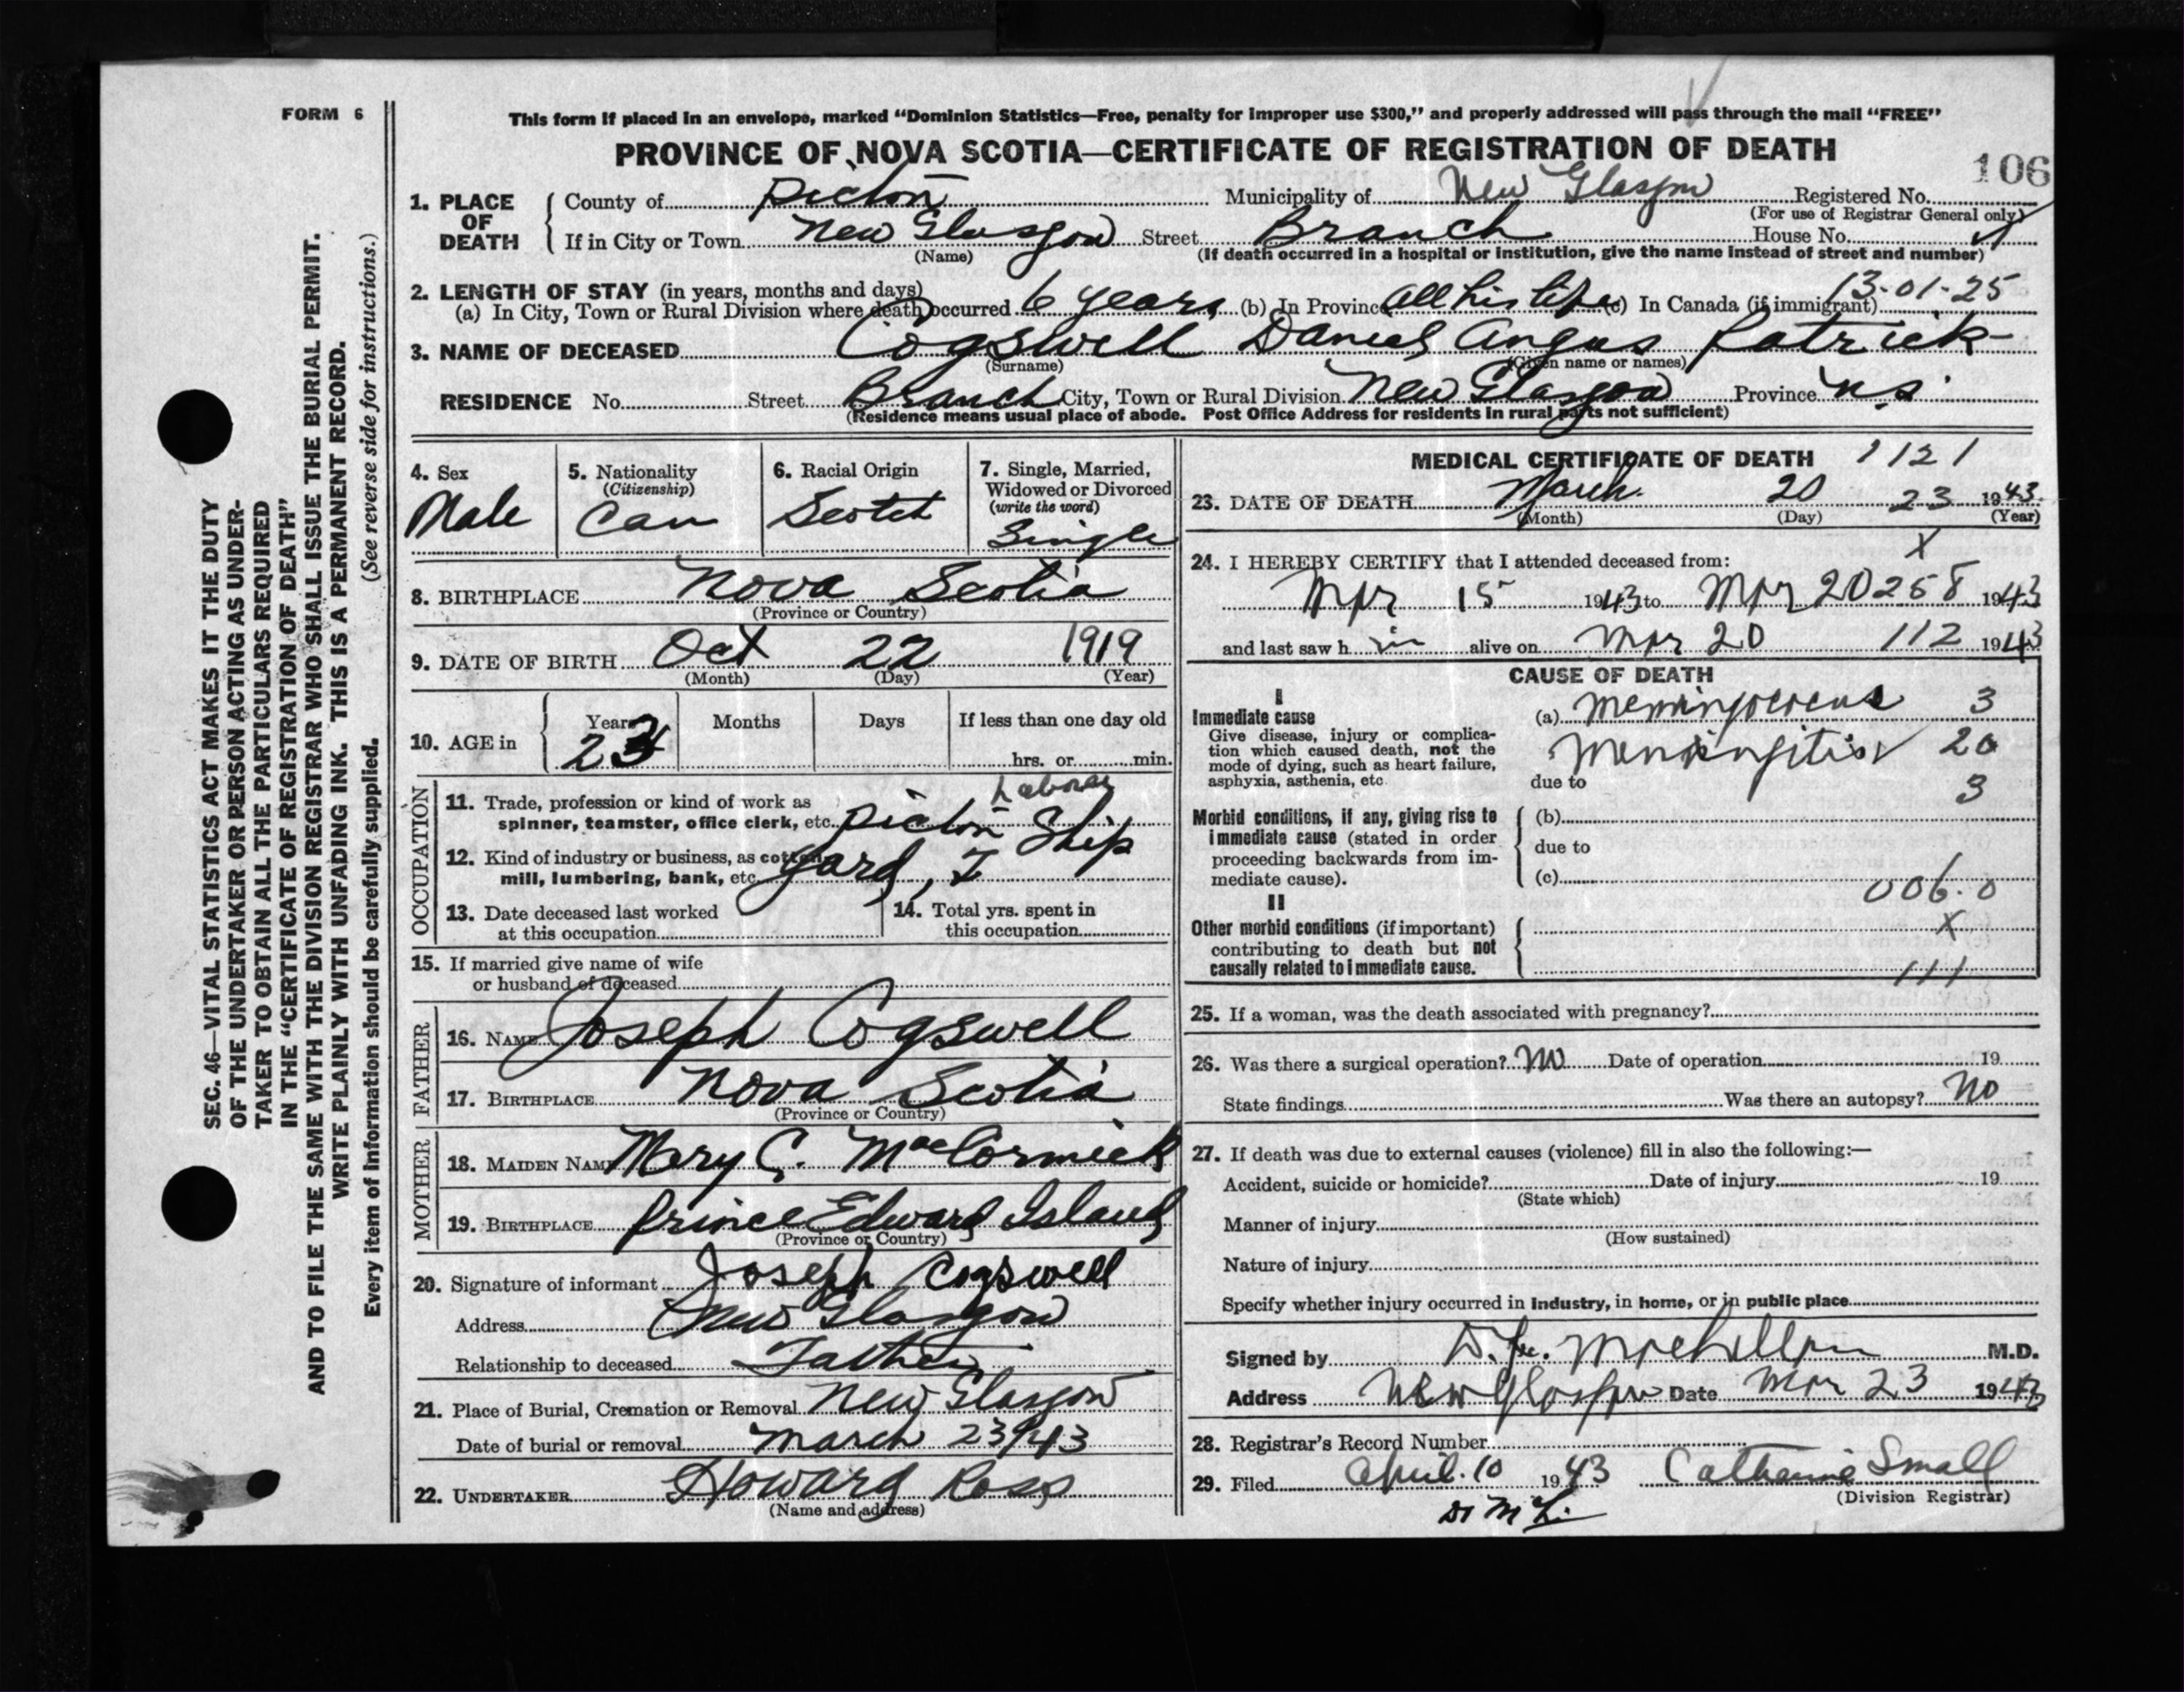 FORM 6
This form if placed in an envelope, marked "Dominion Statistics—Free, penalty for improper use $300," and properly addressed will pass through the mail "FREE"
PROVINCE OF NOVA SCOTIA—CERTIFICATE OF REGISTRATION OF DEATH
106
1. PLACE OF DEATH { County of Pictou Municipality of New Glasgow Registered No.
(For use of Registrar General only)
If in City or Town New Glasgow Street Branch House No.
(Name) (If death occurred in a hospital or institution, give the name instead of street and number)
2. LENGTH OF STAY (in years, months and days) 13-01-25
(a) In City, Town or Rural Division where death occurred 6 years (b) In Province All his life (c) In Canada (if immigrant)
3. NAME OF DECEASED Cogswell Daniel Angus Patrick
(Surname) (Given name or names)
RESIDENCE No. Street Branch City, Town or Rural Division New Glasgow Province N.S.
(Residence means usual place of abode. Post Office Address for residents in rural parts not sufficient)
4. Sex
Male
5. Nationality
(Citizenship)
Can
6. Racial Origin
Scotch
7. Single, Married,
Widowed or Divorced
(write the word)
Single
8. BIRTHPLACE Nova Scotia
(Province or Country)
9. DATE OF BIRTH Oct 22 1919
(Month) (Day) (Year)
10. AGE in { Years Months Days If less than one day old
23 hrs. or min.
OCCUPATION
Labourer
11. Trade, profession or kind of work as
spinner, teamster, office clerk, etc. Pictou Ship
12. Kind of industry or business, as cotton
mill, lumbering, bank, etc. Yard,
13. Date deceased last worked
at this occupation
14. Total yrs. spent in
this occupation
15. If married give name of wife
or husband of deceased
FATHER
16. NAME Joseph Cogswell
17. BIRTHPLACE Nova Scotia
(Province or Country)
MOTHER
18. MAIDEN NAME Mary C. MacCormick
19. BIRTHPLACE Prince Edward Island
(Province or Country)
20. Signature of informant Joseph Cogswell
Address New Glasgow
Relationship to deceased Father
21. Place of Burial, Cremation or Removal New Glasgow
Date of burial or removal March 23/43
22. UNDERTAKER Howard Ross
(Name and address)
MEDICAL CERTIFICATE OF DEATH 1121
23. DATE OF DEATH March 20 23 1943
(Month) (Day) (Year)
X
24. I HEREBY CERTIFY that I attended deceased from:
Mar 15 1943 to Mar 20 258 1943
and last saw h im alive on Mar 20 112 1943
CAUSE OF DEATH
I
Immediate cause
Give disease, injury or complica-
tion which caused death, not the
mode of dying, such as heart failure,
asphyxia, asthenia, etc.
(a) Meningococcus 3
Meningitis 20
due to 3
Morbid conditions, if any, giving rise to
immediate cause (stated in order
proceeding backwards from im-
mediate cause).
(b)
due to
(c)
006.0
II
Other morbid conditions (if important)
contributing to death but not
causally related to immediate cause.
X
111
25. If a woman, was the death associated with pregnancy?
26. Was there a surgical operation? No Date of operation 19
State findings Was there an autopsy? No
27. If death was due to external causes (violence) fill in also the following:—
Accident, suicide or homicide? Date of injury 19
(State which)
Manner of injury
(How sustained)
Nature of injury
Specify whether injury occurred in industry, in home, or in public place
Signed by M.D.
Address New Glasgow Date Mar 23 1943
28. Registrar's Record Number
29. Filed April 10 1943 Catherine Small
(Division Registrar)
SEC. 46—VITAL STATISTICS ACT MAKES IT THE DUTY
OF THE UNDERTAKER OR PERSON ACTING AS UNDER-
TAKER TO OBTAIN ALL THE PARTICULARS REQUIRED
IN THE "CERTIFICATE OF REGISTRATION OF DEATH"
AND TO FILE THE SAME WITH THE DIVISION REGISTRAR WHO SHALL ISSUE THE BURIAL PERMIT.
WRITE PLAINLY WITH UNFADING INK. THIS IS A PERMANENT RECORD.
Every item of information should be carefully supplied. (See reverse side for instructions.)